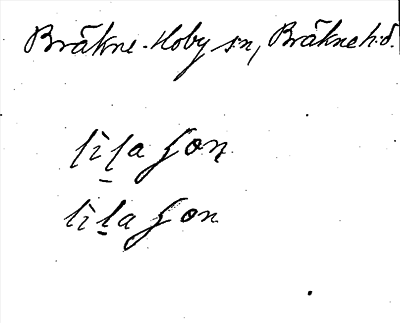 Bräkne-Hoby sn, Bräkne h.d.
lìl̠a ʃon
lìl̠a ʃon